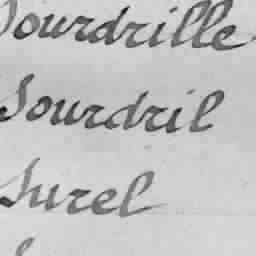 Sourdrille
Sourdril
Surel